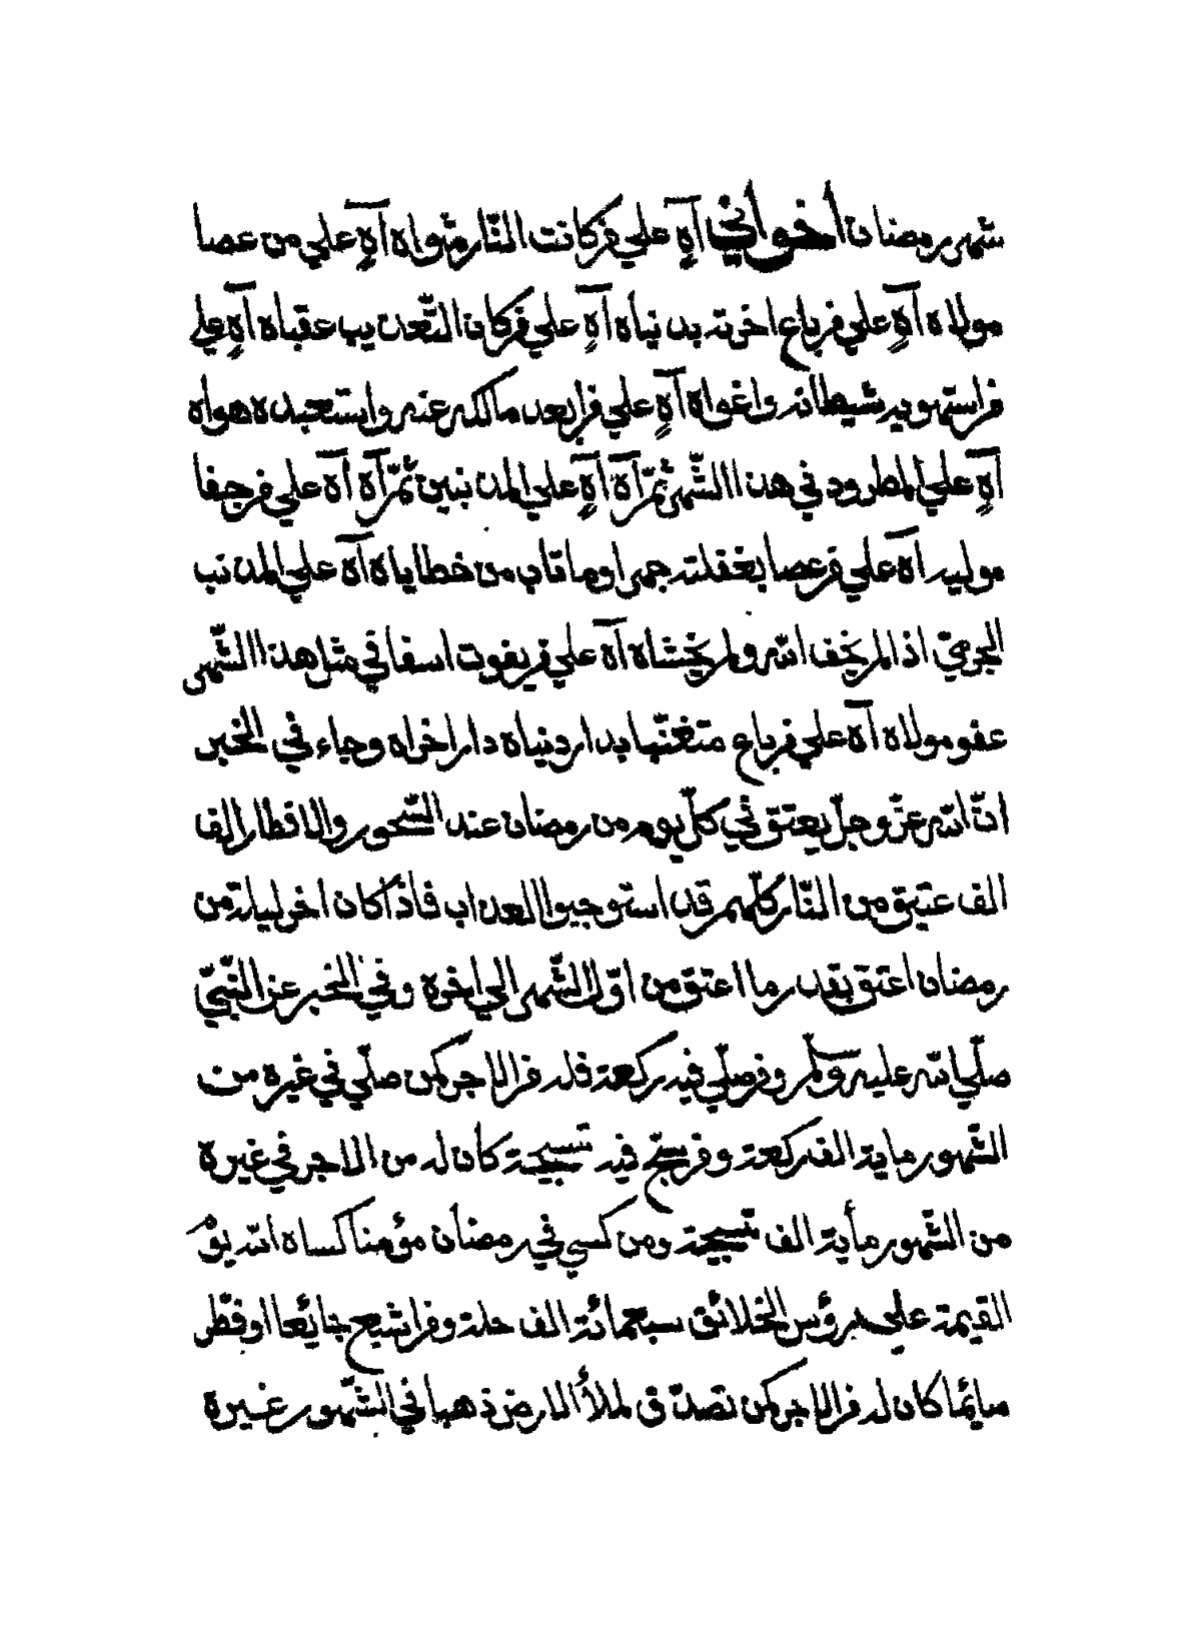 شهر رمضان أخواني آهٍ علي من كانت النّار مثواه آهٍ علي من عصا
مولاه آهٍ علي من باع اخرته بدنياه آهٍ علي من كان التّعذيب عقباه آهٍ علي
من استهويه شيطانه واغواه آهٍ علي من ابعده مالكه عنه واستعبده هواه
آهٍ علي المطرود في هذا الشّهر ثمّ آه آهٍ علي المذنبين ثمّ آه أه علي من جفا
موليه اه علي من عصا بغفلته جهرا وما تاب من خطاياه آه علي المذنب
المجرمي اذا لم يخف الله ولم يخشاه آه علي من يفوت اسفا في مثل هذا الشّهر
عفو مولاه آه علي من باع متغنّها بدار دنياه دار اخراه وجاء في الخبر
انّ الله عزّ وجلّ يعتق في كلّ يوم من رمضان عند السّحور والافطار الف
الف عتيق من النّار كلّهم قد استوجبوا العذاب فاذا كان اخر ليلة من
رمضان اعتق بقدر ما اعتق من اوّل الشّهر الي اخره وفي الخبر عن النّبيّ
صلّي الله عليه وسلّم ومن صلّي فيه ركعة فله من الاجر كمن صلّي في غيره من
الشّهور ماية الف ركعة ومن سبّح فيه تسبيحة كان له من الاجر في غيره
من الشّهور مأية الف تسبيحة ومن كسي في رمضان مؤمنا كساه الله يوم
القيمة علي رؤس الخلائق سبعمائة الف حلة ومن اشبع جائعا او فطّر
صائما كان له من الاجر كمن تصدّق لملأ الارض ذهبا في الشّهور غيره